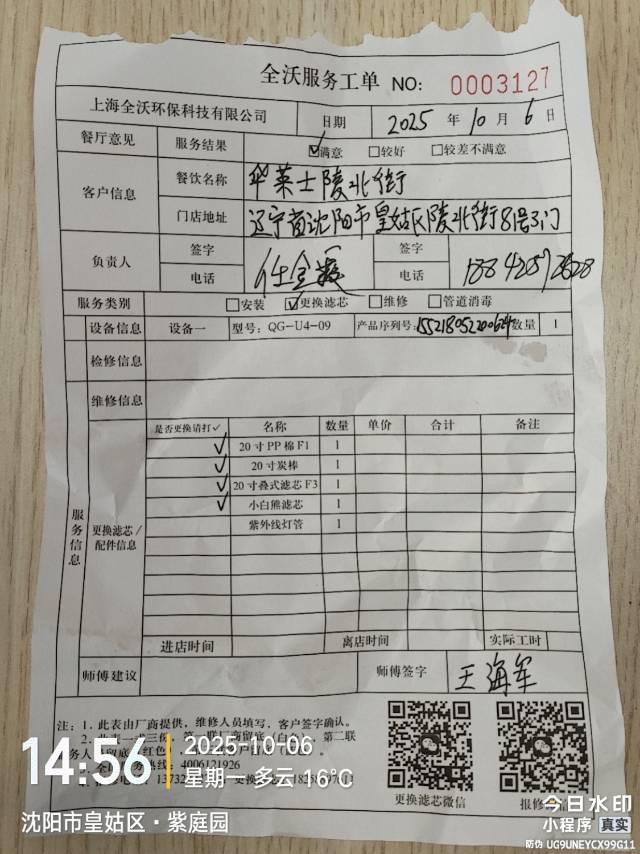 全沃服务工单 NO: 0003127
上海全沃环保科技有限公司 日期 2025 年 10 月 6 日
餐厅意见 服务结果 ☑满意 □较好 □较差不满意
客户信息 餐饮名称 华莱士陵北街
门店地址 辽宁省沈阳市皇姑区陵北街8号3门
负责人 签字 签字
电话 电话 18842572628
服务类别 □安装 ☑更换滤芯 □维修 □管道消毒
设备信息 设备一 型号: QG-U4-09 产品序列号: 数量 1
检修信息
维修信息
服务信息
更换滤芯/配件信息
是否更换请打✓ 名称 数量 单价 合计 备注
✓ 20寸PP棉F1 1
✓ 20寸炭棒 1
✓ 20寸叠式滤芯F3 1
✓ 小白熊滤芯 1
紫外线灯管 1
进店时间 离店时间 实际工时
师傅建议 师傅签字 王海军
注: 1. 此表由厂商提供，维修人员填写，客户签字确认。
4006121926
更换滤芯微信
14:56 2025-10-06
星期一 多云 16℃
沈阳市皇姑区·紫庭园
今日水印
小程序 真实
防伪 UG9UNEYCX99G11